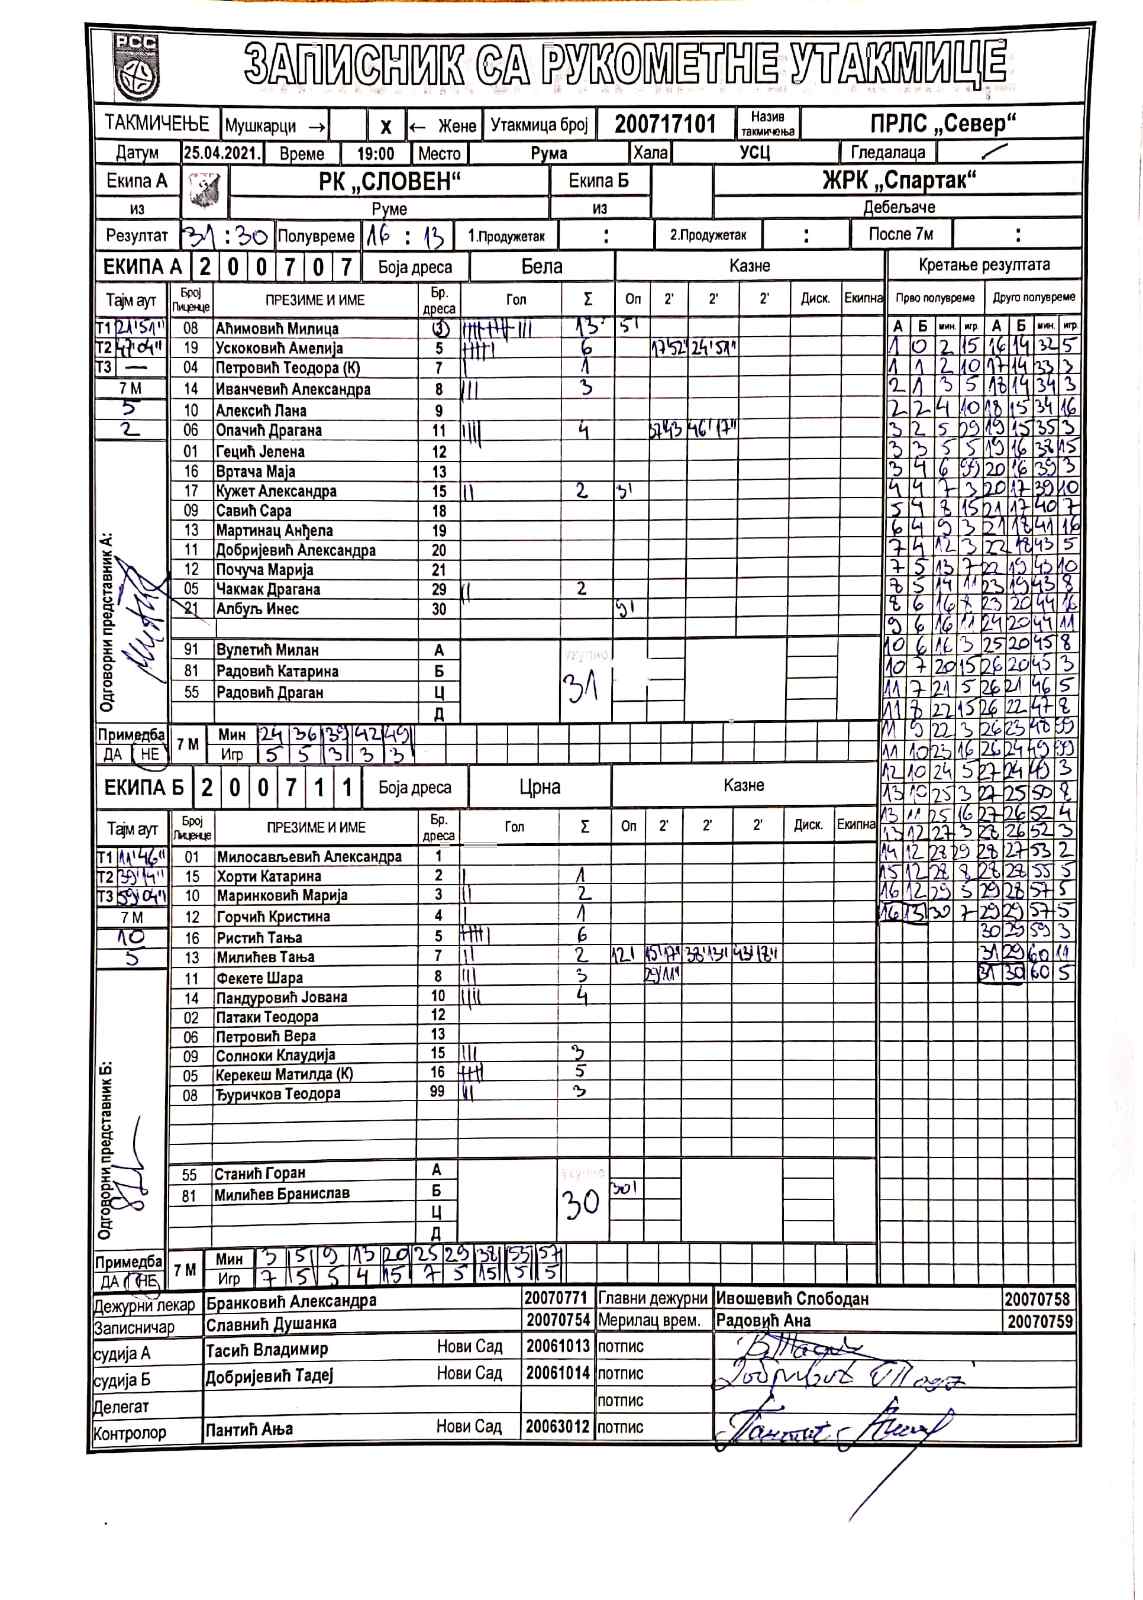 РСС
ЗАПИСНИК СА РУКОМЕТНЕ УТАКМИЦЕ
ТАКМИЧЕЊЕ Мушкарци → X ← Жене Утакмица број 200717101 Назив такмичења ПРЛС „Север“
Датум 25.04.2021. Време 19:00 Место Рума Хала УСЦ Гледалаца
Екипа А РК „СЛОВЕН“ Екипа Б ЖРК „Спартак“
из Руме из Дебељаче
Резултат 31 : 30 Полувреме 16 : 13 1.Продужетак : 2.Продужетак : После 7м :
ЕКИПА А 2 0 0 7 0 7 Боја дреса Бела Казне Кретање резултата
Тајм аут Број Лиценце ПРЕЗИМЕ И ИМЕ Бр. дреса Гол Σ Оп 2' 2' 2' Диск. Екипна Прво полувреме Друго полувреме
Т1 21'51" 08 Аћимовић Милица 3 13 5' А Б мин. игр. А Б мин. игр.
Т2 47'04" 19 Ускоковић Амелија 5 6 17'52" 24'51" 1 0 2 15 16 14 32 5
Т3 — 04 Петровић Теодора (К) 7 1 1 1 2 10 17 14 33 3
7 М 14 Иванчевић Александра 8 3 2 1 3 5 18 14 34 3
5 10 Алексић Лана 9 2 2 4 10 18 15 34 16
2 06 Опачић Драгана 11 4 37'43 46'17" 3 2 5 29 19 15 35 3
01 Гецић Јелена 12 3 3 5 5 19 16 38 15
16 Вртача Маја 13 3 4 6 99 20 16 39 3
17 Кужет Александра 15 2 31' 4 4 7 3 20 17 39 10
09 Савић Сара 18 5 4 8 15 21 17 40 7
13 Мартинац Анђела 19 6 4 9 3 21 18 41 16
11 Добријевић Александра 20 7 4 12 3 22 18 43 5
12 Почуча Марија 21 7 5 13 7 22 19 43 10
05 Чакмак Драгана 29 2 7 5 14 11 23 19 43 8
21 Албуљ Инес 30 91 8 6 16 8 23 20 44 16
9 6 16 11 24 20 44 11
91 Вулетић Милан А укупно 10 6 16 3 25 20 45 8
81 Радовић Катарина Б 31 10 7 20 15 26 20 45 3
55 Радовић Драган Ц 11 7 21 5 26 21 46 5
Д 11 8 22 15 26 22 47 8
Одговорни представник А:
Примедба 7 М Мин 24 36 39 42 49 11 9 22 3 26 23 48 99
ДА НЕ Игр 5 5 3 3 3 11 10 23 16 26 24 49 99
ЕКИПА Б 2 0 0 7 1 1 Боја дреса Црна Казне 12 10 24 5 27 24 49 3
13 10 25 3 27 25 50 8
Тајм аут Број Лиценце ПРЕЗИМЕ И ИМЕ Бр. дреса Гол Σ Оп 2' 2' 2' Диск. Екипна 13 11 25 16 27 26 52 4
13 12 27 3 28 26 52 3
Т1 11'46" 01 Милосављевић Александра 1 14 12 28 29 28 27 53 2
Т2 39'14" 15 Хорти Катарина 2 1 15 12 28 8 28 28 55 5
Т3 59'04" 10 Маринковић Марија 3 2 16 12 29 5 29 28 57 5
7 М 12 Горчић Кристина 4 1 16 13 30 7 29 29 57 5
10 16 Ристић Тања 5 6 30 29 59 3
5 13 Милићев Тања 7 2 12' 15'17" 38'13" 43'18" 31 29 60 11
11 Фекете Шара 8 3 29'11" 31 30 60 5
14 Пандуровић Јована 10 4
02 Патаки Теодора 12
06 Петровић Вера 13
09 Солноки Клаудија 15 3
05 Керекеш Матилда (К) 16 5
08 Ђуричков Теодора 99 3
Одговорни представник Б:
55 Станић Горан А укупно
81 Милићев Бранислав Б 30 30'
Ц
Д
Примедба 7 М Мин 3 5 9 13 20 25 29 38 55 57
ДА НЕ Игр 7 5 5 4 15 7 5 15 5 5
Дежурни лекар Бранковић Александра 20070771 Главни дежурни Ивошевић Слободан 20070758
Записничар Славнић Душанка 20070754 Мерилац врем. Радовић Ана 20070759
судија А Тасић Владимир Нови Сад 20061013 потпис
судија Б Добријевић Тадеј Нови Сад 20061014 потпис
Делегат потпис
Контролор Пантић Ања Нови Сад 20063012 потпис